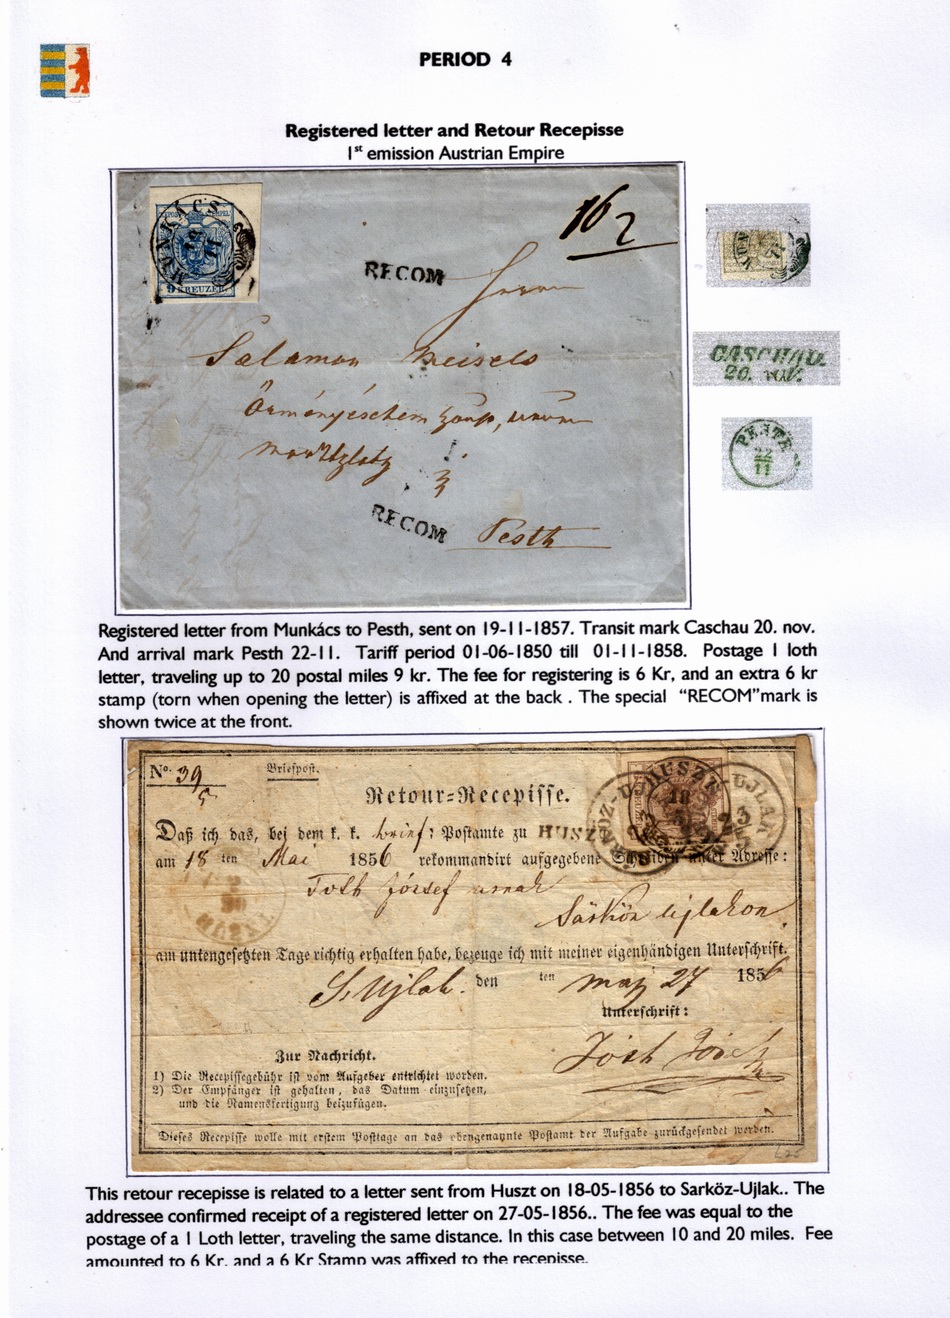 PERIOD 4
Registered letter and Retour Recepisse
1st emission Austrian Empire
MUNKÁCS
19
11
9 KREUZER
162
RECOM
Herrn
Salamon Meisels
CASCHAU.
20. NOV.
PESTH
22
11
RECOM
Pesth
Registered letter from Munkács to Pesth, sent on 19-11-1857. Transit mark Caschau 20. nov.
And arrival mark Pesth 22-11. Tariff period 01-06-1850 till 01-11-1858. Postage 1 loth
letter, traveling up to 20 postal miles 9 kr. The fee for registering is 6 Kr, and an extra 6 kr
stamp (torn when opening the letter) is affixed at the back . The special “RECOM”mark is
shown twice at the front.
No. 39
Briefpost.
Retour=Recepisse.
Daß ich das, bei dem k. k. brief: Postamte zu HUSZT
am 18 ten Mai 1856 rekommandirt aufgegebene Schreiben unter Adresse:
Toth József
Sárköz Ujlakon
am untengesetzten Tage richtig erhalten habe, bezeuge ich mit meiner eigenhändigen Unterschrift.
S. Ujlak. den ten maj 27 1856
Unterschrift:
Zur Nachricht.
1) Die Recepissegebühr ist vom Aufgeber entrichtet worden.
2) Der Empfänger ist gehalten, das Datum einzusetzen,
und die Namensfertigung beizufügen.
Dieses Recepisse wolle mit erstem Posttage an das obengenannte Postamt der Aufgabe zurückgesendet werden.
This retour recepisse is related to a letter sent from Huszt on 18-05-1856 to Sarköz-Ujlak.. The
addressee confirmed receipt of a registered letter on 27-05-1856.. The fee was equal to the
postage of a 1 Loth letter, traveling the same distance. In this case between 10 and 20 miles. Fee
amounted to 6 Kr. and a 6 Kr Stamp was affixed to the recepisse.